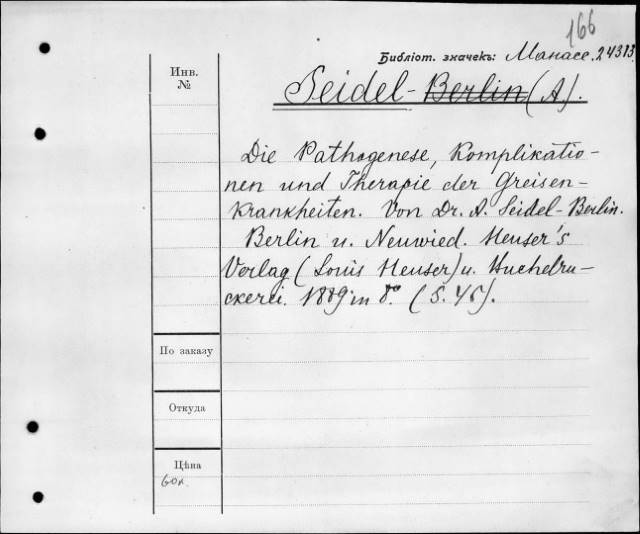 166
Библіот. значекъ: Манасе. 24313.
Инв.
№
Seidel - Berlin (A).
Die Pathogenese, Komplikatio-
nen und Therapie der Greisen-
krankheiten. Von Dr. A. Seidel-Berlin.
Berlin u. Neuwied. Heuser's
Verlag (Louis Heuser) u. Buchdru-
ckerei. 1889 in 8° (S. 45).
По заказу
Откуда
Цѣна
60к.